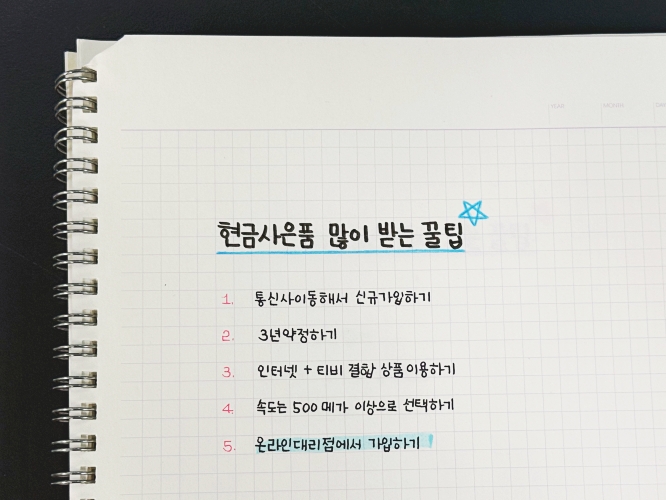 YEAR MONTH
현금사은품 많이 받는 꿀팁
1. 통신사이동해서 신규가입하기
2. 3년약정하기
3. 인터넷 + 티비 결합 상품이용하기
4. 속도는 500 메가 이상으로 선택하기
5. 온라인대리점에서 가입하기